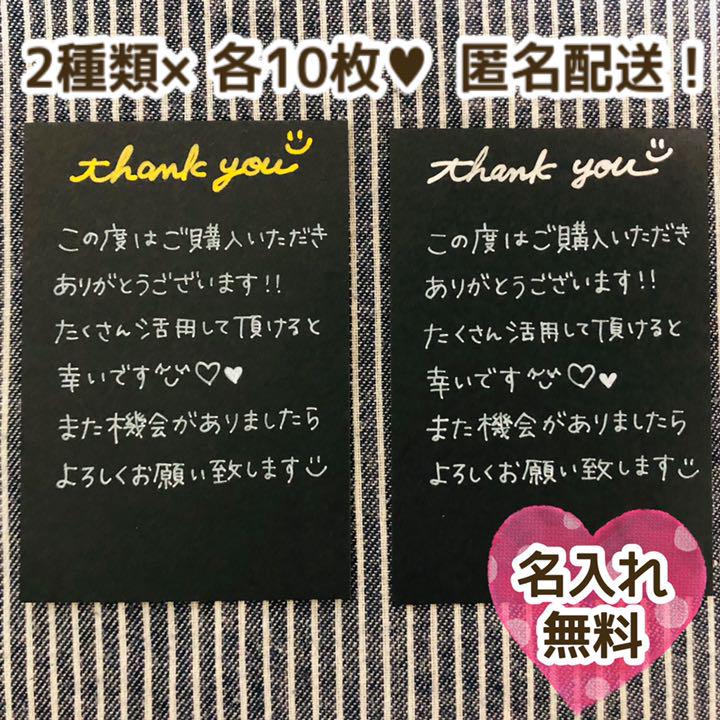 2種類× 各10枚♥ 匿名配送！
thank you
この度はご購入いただき
ありがとうございます!!
たくさん活用して頂けると
幸いです♡♥
また機会がありましたら
よろしくお願い致します
thank you
この度はご購入いただき
ありがとうございます!!
たくさん活用して頂けると
幸いです♡♥
また機会がありましたら
よろしくお願い致します
名入れ
無料